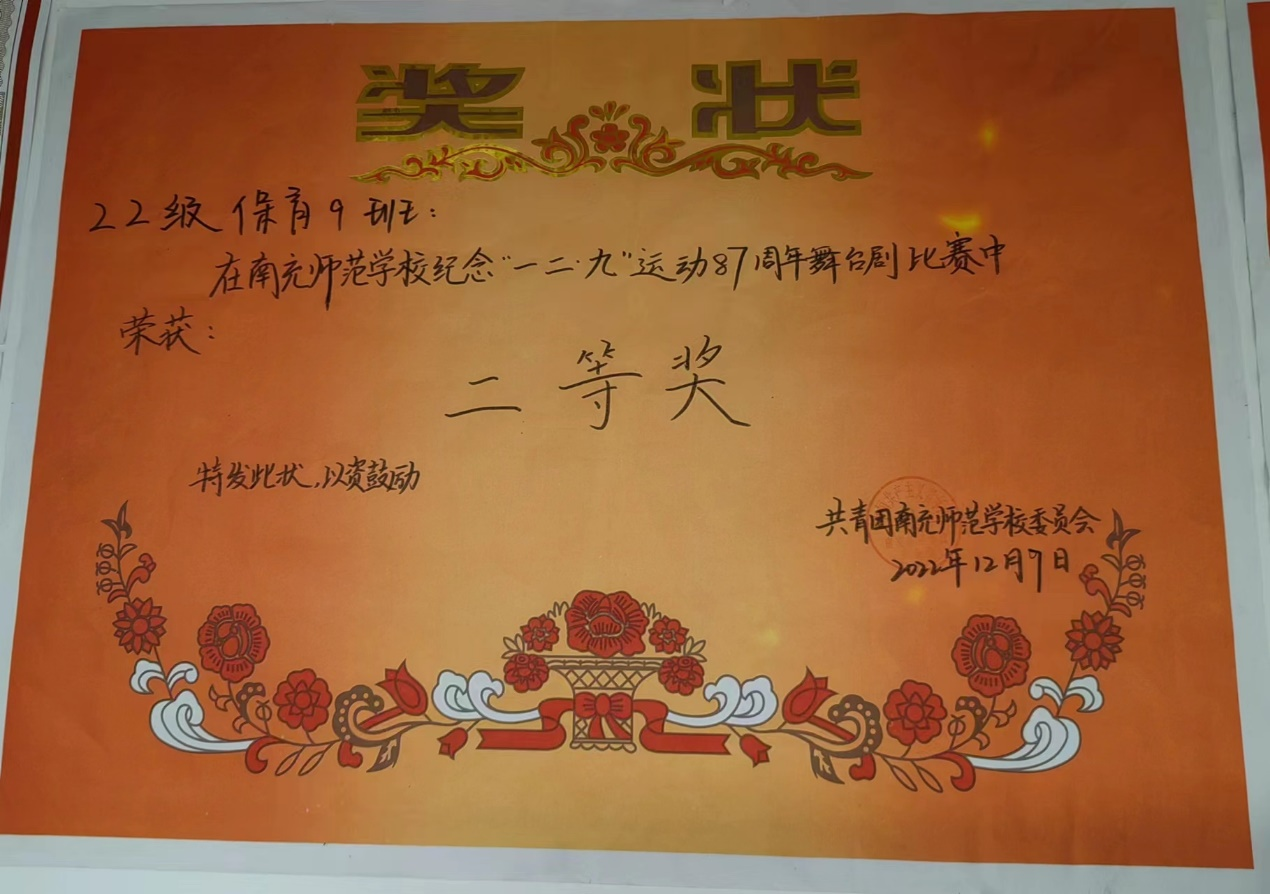 奖状
22级保育9班:
在南充师范学校纪念"一二·九"运动87周年舞台剧比赛中
荣获:
二等奖
特发此状,以资鼓励
共青团南充师范学校委员会
2022年12月9日